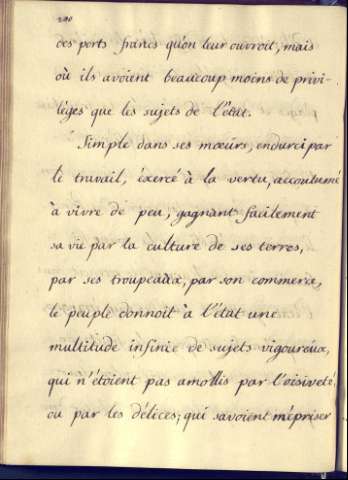 290
des ports francs qu'on leur ouvroit, mais
où ils avoient beaucoup moins de privi-
léges que les sujets de l'état.
Simple dans ses mœurs, endurci par
le travail, éxercé à la vertu, accoutumé
à vivre de peu, gagnant facilement
sa vie par la culture de ses terres,
par ses troupeaux, par son commerce,
le peuple donnoit à l'état une
multitude infinie de sujets vigoureux,
qui n'étoient pas amollis par l'oisiveté
ou par les délices; qui savoient mépriser